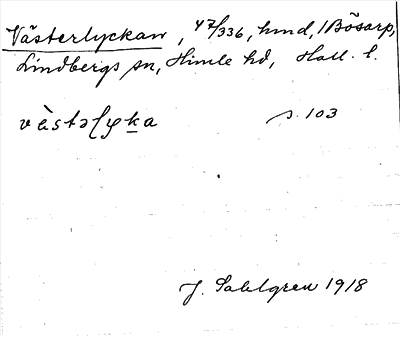 Västerlyckan, 47/336, hmd, 1 Bösarp,
Lindbergs sn, Himle hd, Hall. l.
s. 103
J. Sahlgren 1918